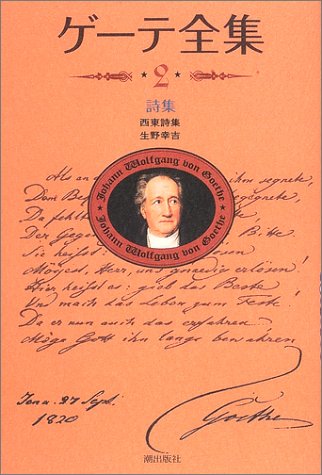 ゲーテ全集
2
詩集
西東詩集
生野幸吉
Johann Wolfgang von Goethe
Johann Wolfgang von Goethe
Als an ihm segnete,
Dem Be
Da fehlt
Der Gegen Bitte
Sie heißt
Mögest, Herr, uns gnaedig erlösen!
Hier heisst es: gieb das Beste
Und mach das Leben zum Feste!
Da er nun auch das erfahren.
Möge Gott ihn lange bewahren
Jena. 27 Sept.
1820
Goethe
潮出版社